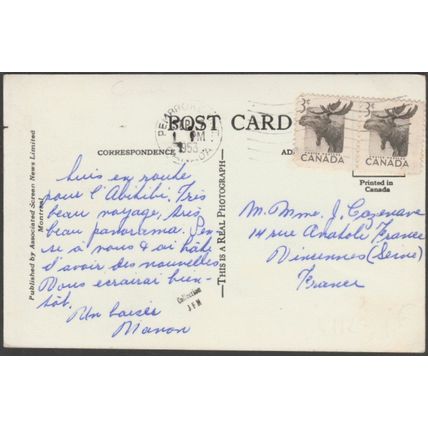 PEMBROKE
PM
1953
POST CARD
CORRESPONDENCE
3¢
CANADA
3¢
CANADA
Printed in
Canada
Published by Associated Screen News Limited
Montreal
—THIS IS A REAL PHOTOGRAPH—
Suis en route
pour l'Abitibi. Très
beau voyage, très
beau panorama. Pen
se à vous & ai hâte
d'avoir des nouvelles
Vous écrirai bien-
tôt.
Un baiser
Manon
Collection
J F M
M. Mme. J. Cazenave
14 rue Anatole France
Vincennes (Seine)
France